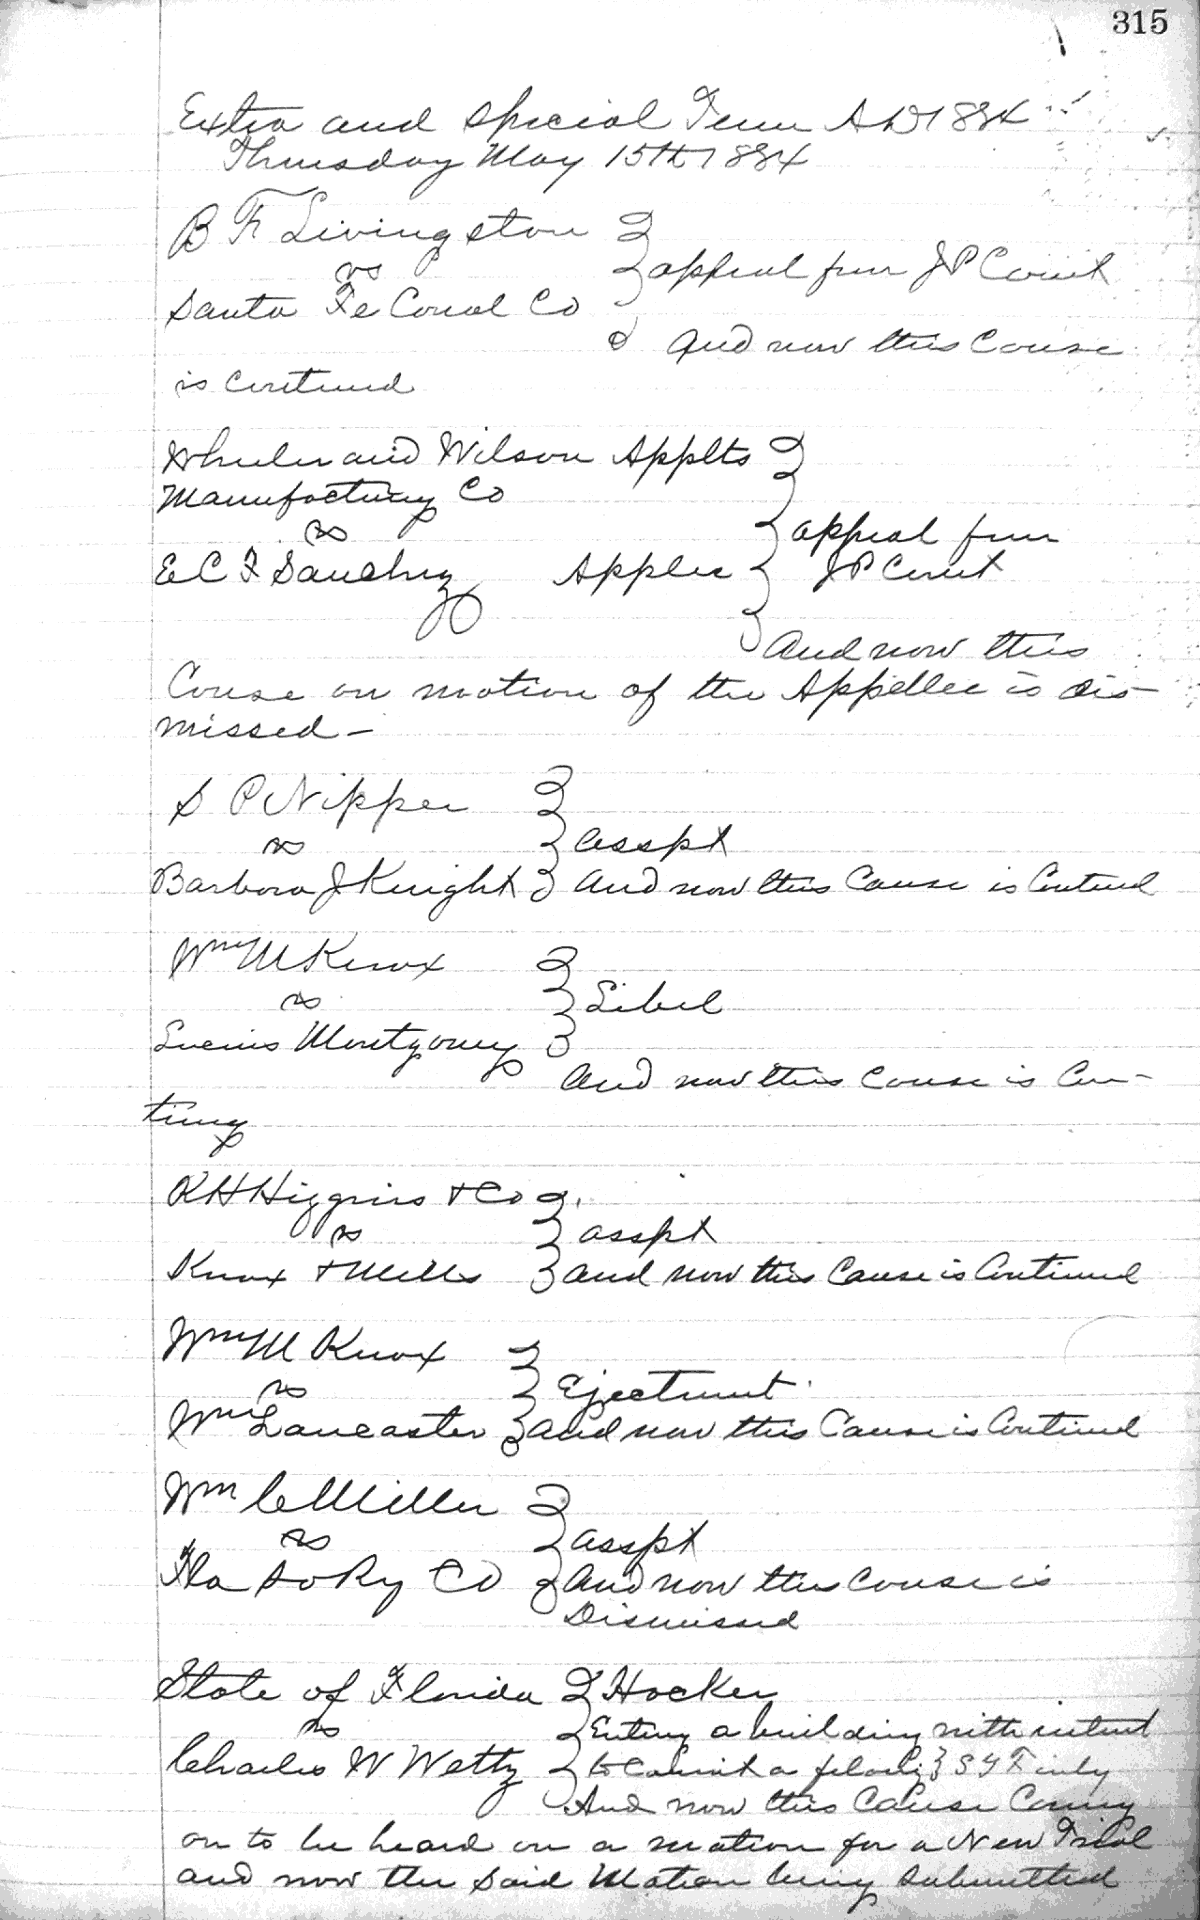 315
Extra and Special Term A D 1884
Thursday May 15th 1884
B F Livingston
vs
appeal from J P Court
Santa Fe Canal Co
And now this Cause
is Continued
Wheeler and Wilson Applts
Manufacturing Co
vs
appeal from
E C F Sanchez Applee J P Court
And now this
Cause on motion of the Appellee is dis-
missed -
S P Nipper
vs
asspt
Barbara J Knight And now this Cause is Continued
Wm M Knox
vs
Libel
Lucius Montgomery
And now this Cause is Con-
tinug
R H Higgins & Co
vs
asspt
Knox & Mills and now this Cause is Continued
Wm M Knox
vs
Ejectment
Wm Lancaster and now this Cause is Continued
Wm C Miller
vs
asspt
Fla So Ry Co And now this Cause is
Dismissed
State of Florida Hocker
vs
Enting a building with intent
Charles W Wetty to Commit a felony S Y Finly
And now this Cause Coming
on to be heard on a motion for a New Trial
and now the said Motion being submitted